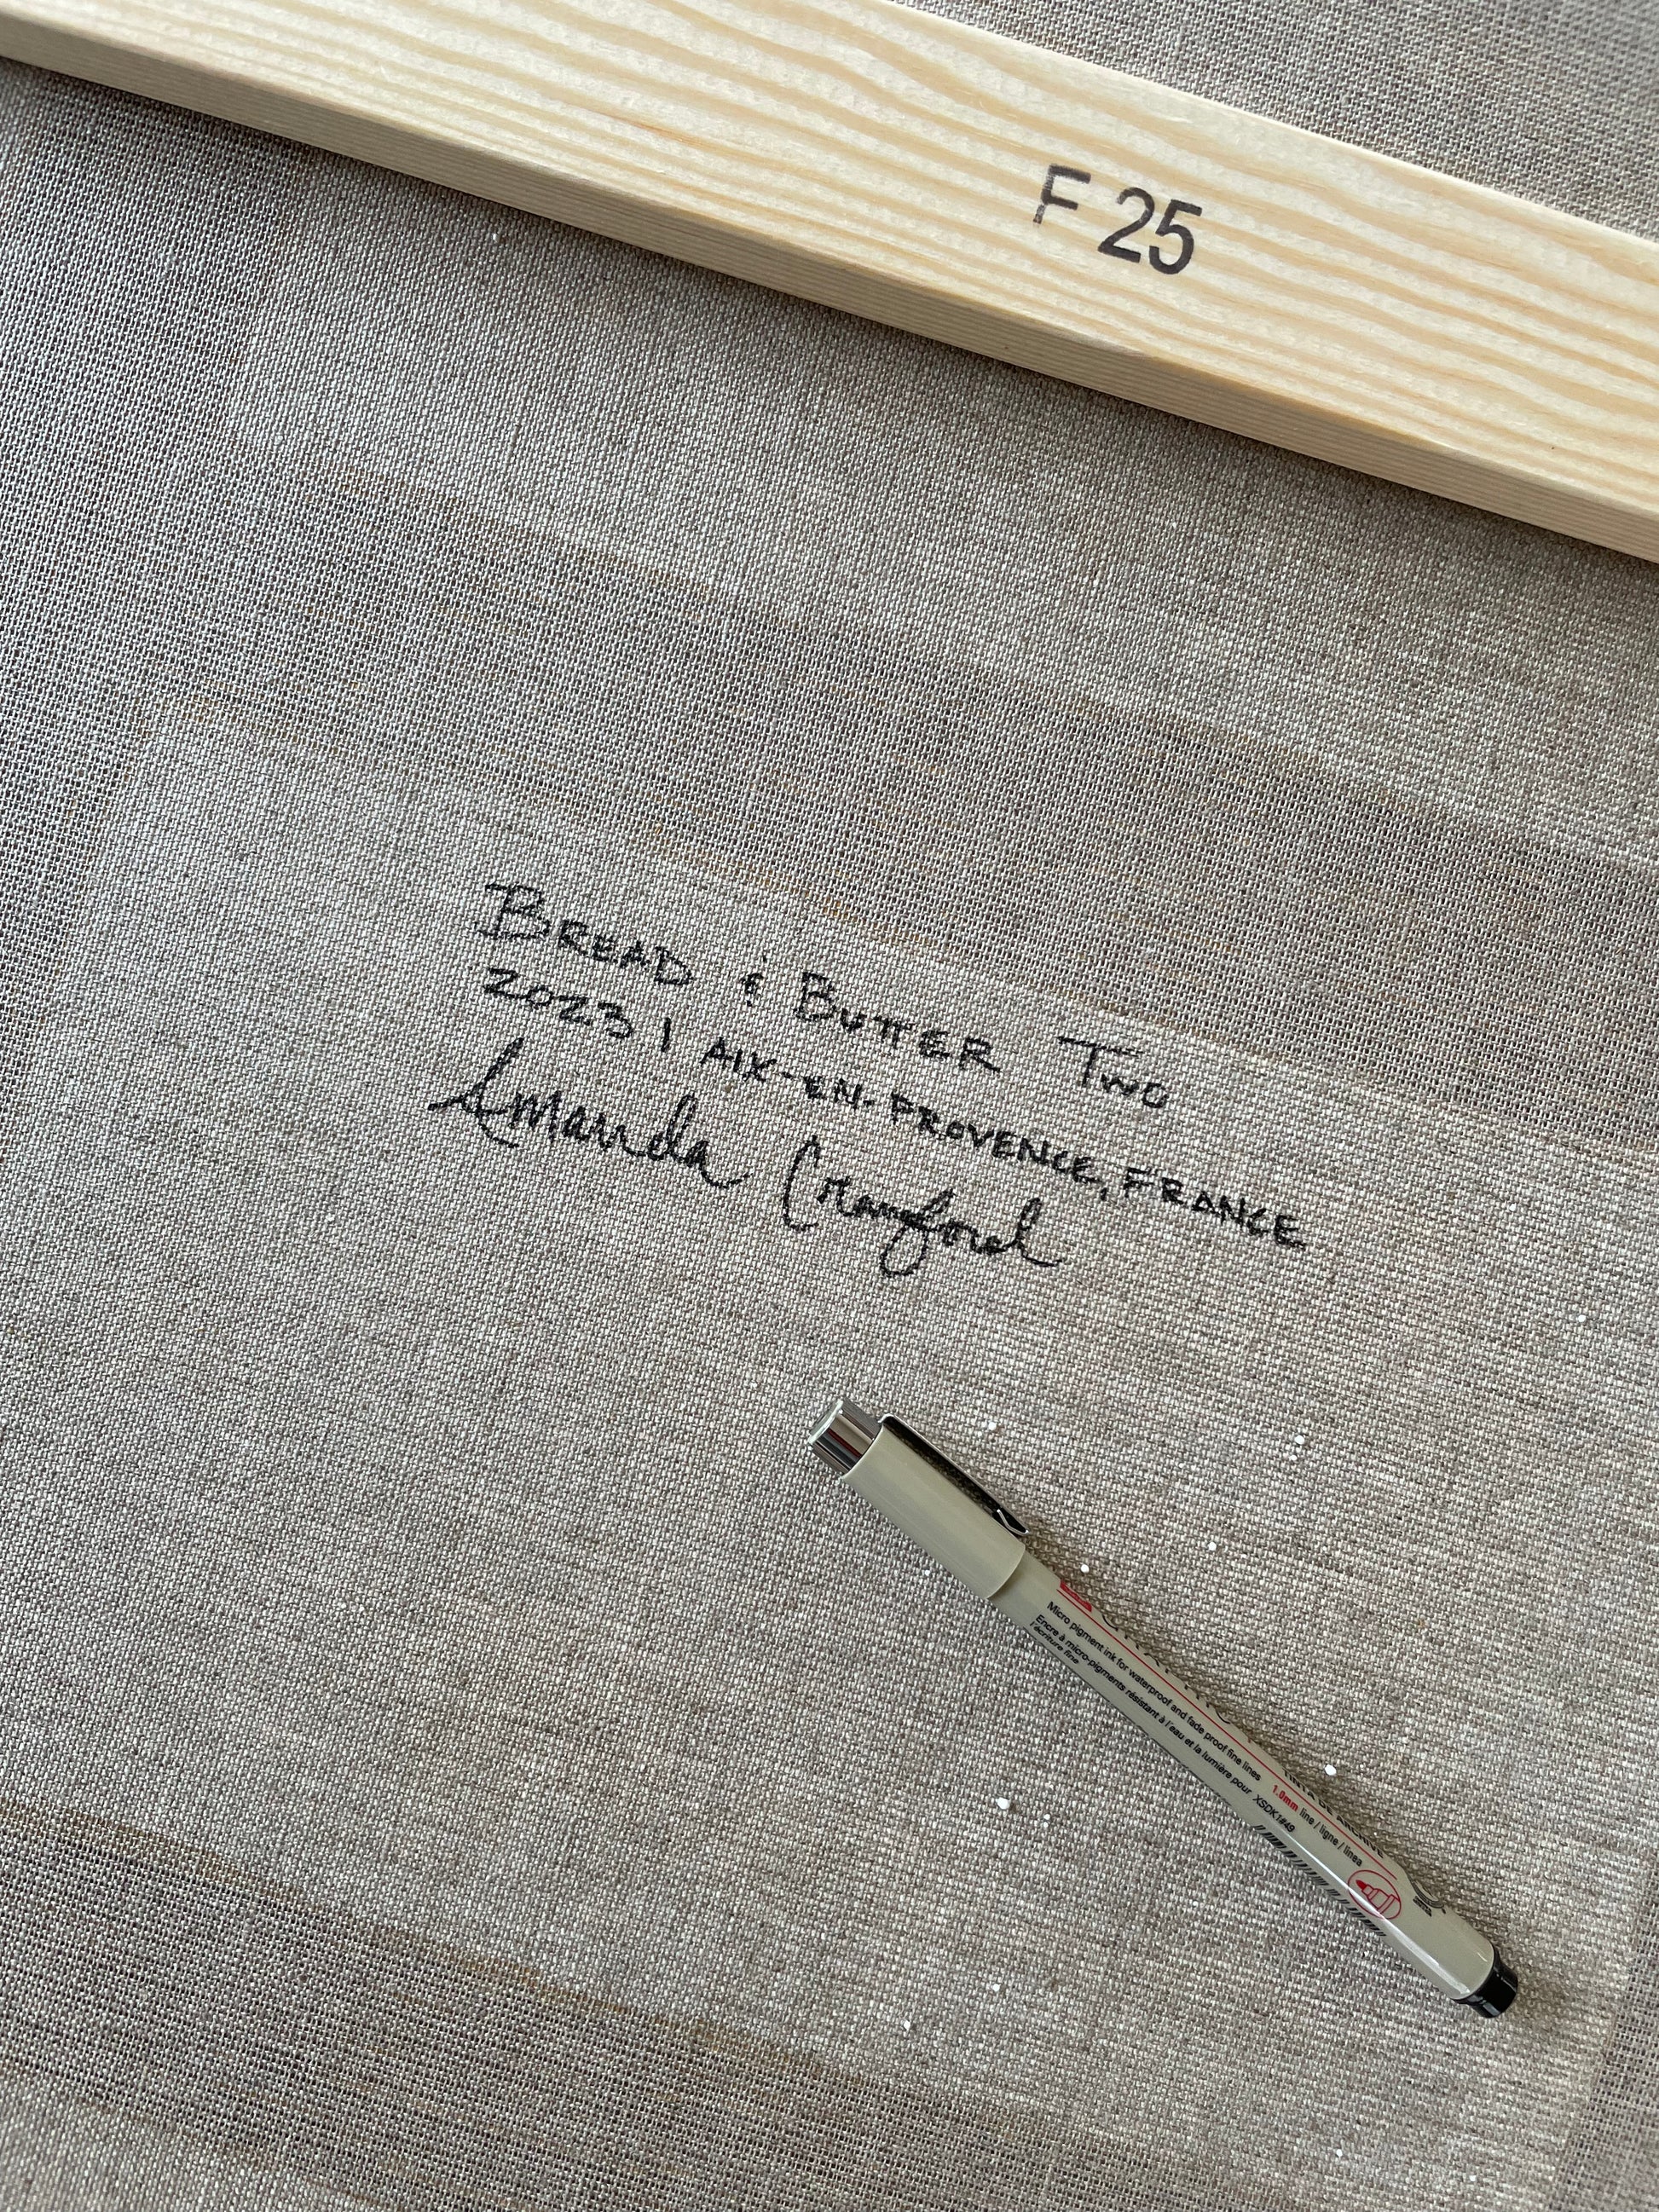 F 25
BREAD & BUTTER TWO
2023 | AIX-EN-PROVENCE, FRANCE
Amanda Crawford
Micro pigment ink for waterproof and fade proof fine lines
Encre à micro-pigments résistant à l'eau et la lumière pour
l'écriture fine
XSDK1#49
1.0mm line / ligne / línea